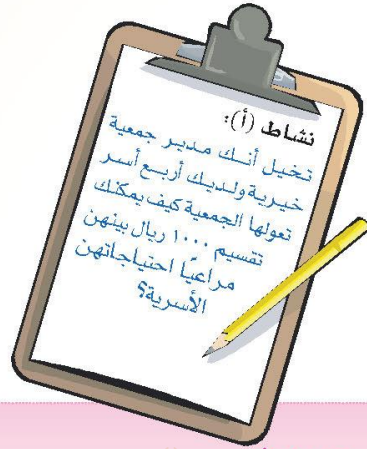 نشاط (أ):
تخيل أنك مدير جمعية
خيرية ولديك أربع أسر
تعولها الجمعية كيف يمكنك
تقسيم ١٠٠٠ ريال بينهن
مراعيًا احتياجاتهن
الأسرية؟